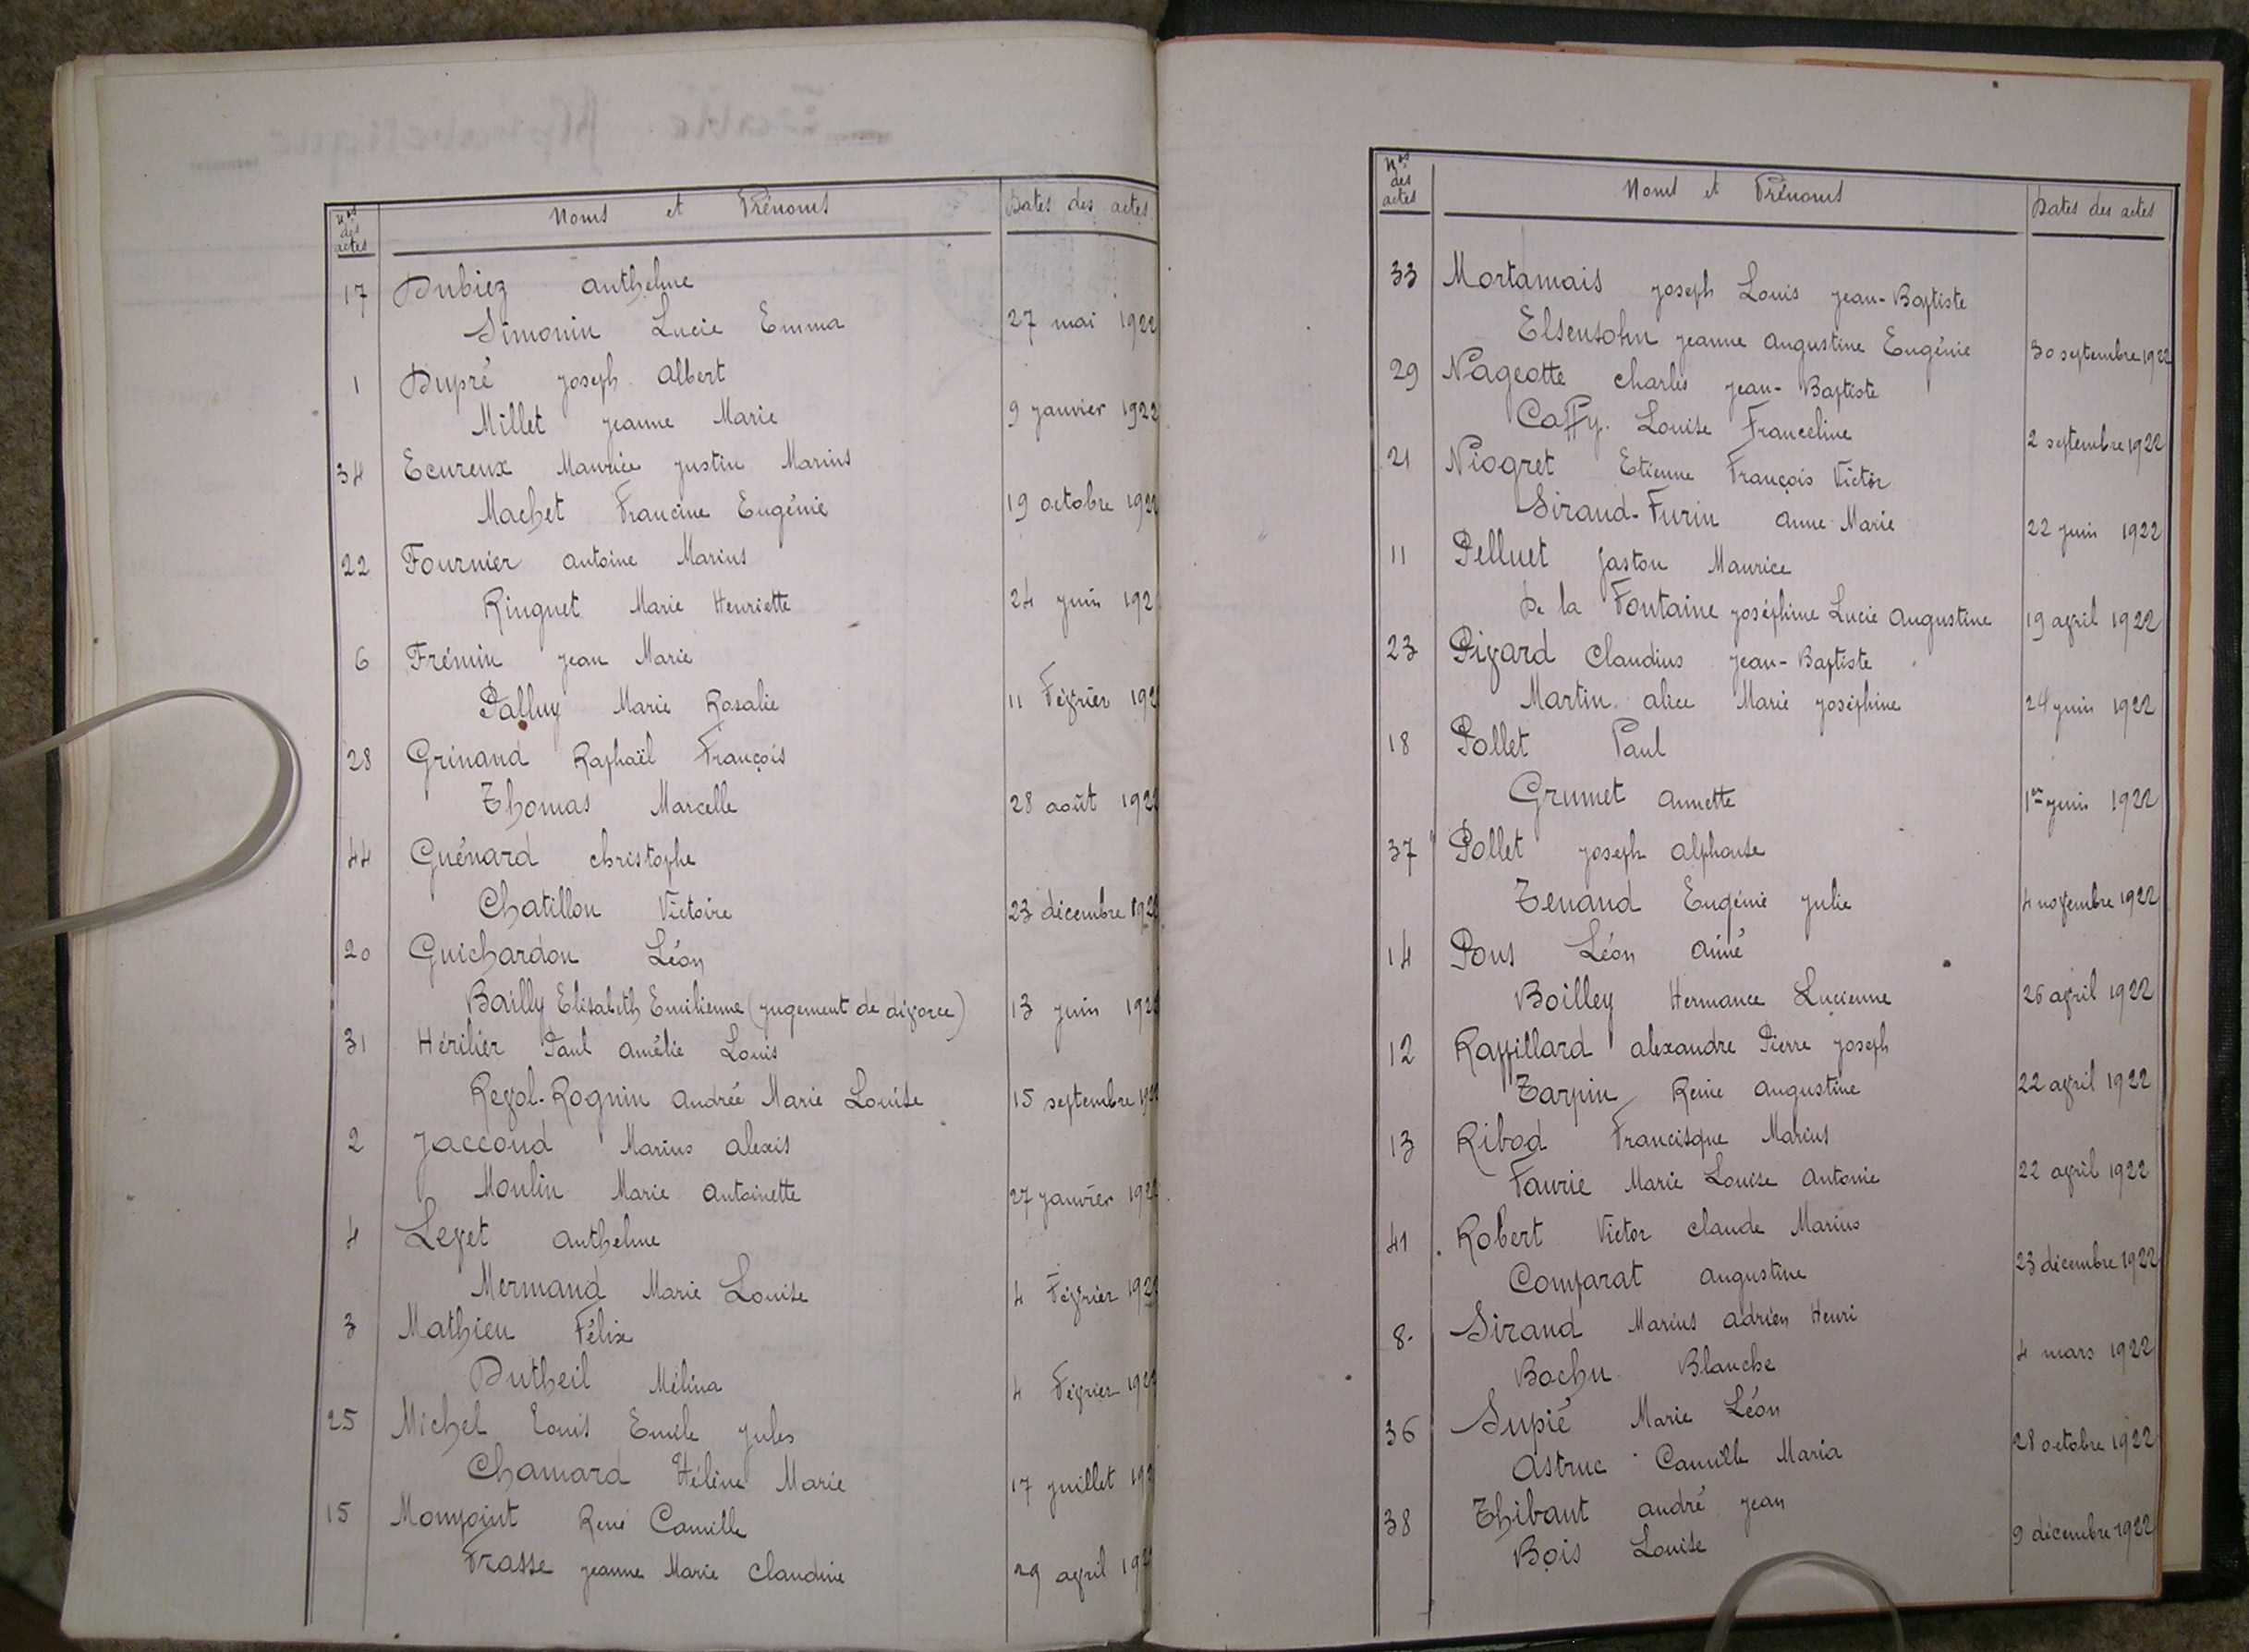 Nos des actes
Noms et Prénoms
Dates des actes
17 Dubiez Anthelme
Simonin Lucie Emma 27 mai 1922
1 Dupré Joseph Albert
Millet Jeanne Marie 9 janvier 1922
34 Ecureux Maurice Justin Marius
Machet Francine Eugénie 19 octobre 1922
22 Fournier Antoine Marius
Ringuet Marie Henriette 24 juin 192
6 Frémin Jean Marie
Palluy Marie Rosalie 11 Février 192
28 Grinand Raphaël François
Thomas Marcelle 28 août 1922
44 Guénard Christophe
Chatillon Victoire 23 décembre 192
20 Guichardon Léon
Bailly Elisabeth Emilienne (jugement de divorce) 13 juin 192
31 Hérilier Paul Amélie Louis
Revol-Rognin Andrée Marie Louise 15 septembre 192
2 Jaccoud Marius Alexis
Moulin Marie Antoinette 27 janvier 192
4 Levet Anthelme
Mermand Marie Louise 4 Février 192
3 Mathieu Félix
Dutheil Mélina 4 Février 192
25 Michel Louis Emile Jules
Chamard Hélène Marie 17 juillet 19
15 Mompoint René Camille
Frasse Jeanne Marie Claudine 29 avril 19
Nos des actes
Noms et Prénoms
Dates des actes
33 Mortamais Joseph Louis Jean-Baptiste
Elsensohn Jeanne Augustine Eugénie 30 septembre 1922
29 Nageotte Charles Jean-Baptiste
Caffy Louise Franceline 2 septembre 1922
21 Niogret Etienne François Victor
Siraud-Furin Anne Marie 22 juin 1922
11 Pelluet Gaston Maurice
De la Fontaine Joséphine Lucie Augustine 19 avril 1922
23 Pivard Claudius Jean-Baptiste
Martin Alice Marie Joséphine 24 juin 1922
18 Pollet Paul
Grumet Annette 1er juin 1922
37 Pollet Joseph Alphonse
Tenand Eugénie Julie 4 novembre 1922
14 Pons Léon Aimé
Boilley Hermance Lucienne 26 avril 1922
12 Rappillard Alexandre Pierre Joseph
Tarpin Reine Augustine 22 avril 1922
13 Ribod Francisque Marius
Faurie Marie Louise Antonie 22 avril 1922
41 Robert Victor Claude Marius
Comparat Augustine 23 décembre 1922
8 Sirand Marius Adrien Henri
Bochu Blanche 4 mars 1922
36 Supié Marie Léon
Astruc Camille Maria 28 octobre 1922
38 Thibaut André Jean
Bois Louise 9 décembre 1922